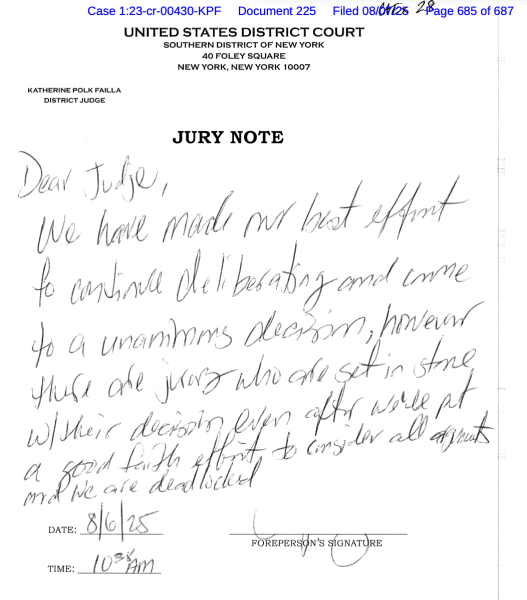 Case 1:23-cr-00430-KPF Document 225 Filed 08/ 25 Page 685 of 687
28
UNITED STATES DISTRICT COURT
SOUTHERN DISTRICT OF NEW YORK
40 FOLEY SQUARE
NEW YORK, NEW YORK 10007
KATHERINE POLK FAILLA
DISTRICT JUDGE
JURY NOTE
Dear Judge,
We have made our best effort
to continue deliberating and come
to a unanimous decision, however
there are jurors who are set in stone
w/ their decision even after we've put
a good faith effort to consider all arguments
and we are deadlocked
DATE: 8/6/25
FOREPERSON'S SIGNATURE
TIME: 10 AM